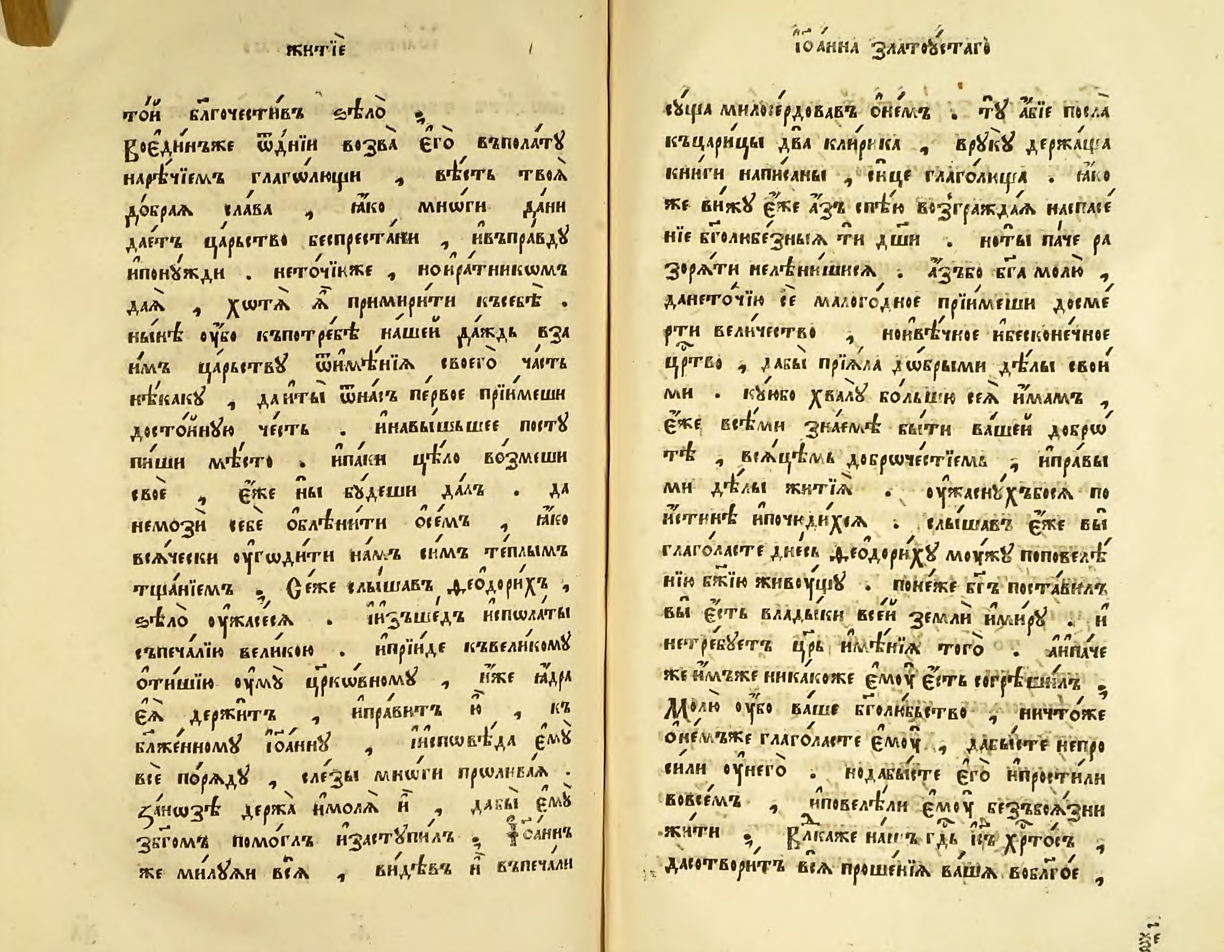 житїѐ
то́й бл҃гоче́стивъ ѕѣло̀ ;
Воєди́нъже ѿдні́и возва̀ є҆го̀ въпола́ту
наре́чїемъ глаго́лющи , вѣ́сть твоѧ̀
до́браѧ сла́ва , ꙗ҆́ко мнѡ́ги да́ни
дае́тъ ца́рьство беспреста́ни , и҆въпра́вду
и҆пону́жди . нето́чїюже , нои҆ра́тникѡмъ
даѧ̀ , хотѧ̀ ѧ҆̀ примири́ти къ себѣ̀ .
ны́нѣ ᲂу҆̀бо къпотре́бѣ на́шей да́ждь вза
и́мъ ца́рьству ѿи҆мѣ́нїѧ своего̀ ча́сть
нѣ́какꙋ , даи҆ты̀ ѿна́съ пе́рвое прїи́меши
досто́йную че́сть . и҆навы́шьшее посту
пи́ши мѣ́сто . и҆па́ки цѣ́ло во́змеши
своѐ , є҆́же ны̀ бу́деши да́лъ . да
немозѝ себѐ ѻ҆блѣни́ти ѻ҆се́мъ , ꙗ҆́ко
всѧ́чески ᲂу҆годи́ти на́мъ си́мъ те́плымъ
тща́нїемъ ; Се́же слы́шавъ ѳео́дорихъ ,
ѕѣло̀ ᲂу҆жасе́сѧ . и҆и҆зъше́дъ и҆спола́ты
съпеча́лїю вели́кою . и҆прїи́де къвели́кому
ѻ҆ти́шїю ᲂу҆му̀ цр҃ко́вному , и҆́же ꙗ҆́дра
є҆ѧ̀ держи́тъ , и҆пра́витъ ю҆̀ , къ
бл҃же́нному і҆ѡа́нну , и҆и҆сповѣ́да є҆му̀
всѐ по́рѧду , сле́зы мнѡ́ги прѡлива́ѧ .
За́ноѕѣ держа̀ и҆молѧ̀ и҆̀ , дабы̀ є҆му̀
з̾бг҃омъ помо́глъ и҆заступи́лъ ; І҆ѡа́ннъ
же ми́луѧи всѧ̀ , ви́дѣвъ и҆̀ въпеча́ли
і҆ѡа́нна златоꙋ́стаго̀
су́ща милосе́рдовавъ ѻ҆не́мъ . ту̀ а҆́бїе посла̀
къцари́цы два̀ кли́рика , вру́ку держа́ща
кни́ги напи́саны , си́це глаго́люща . ꙗ҆́ко
же ви́жу є҆́же а҆́зъ спѣ́ю возгражда́ѧ наспасе́
нїе бг҃олюбе́зныѧ тѝ дш҃и . ноты̀ па́че ра
зорѧ́ти нелѣни́шисѧ . а҆́зъбо бг҃а молю̀ ,
дането́чїю сѐ малого́дное прїи́меши досме́
рти вели́чество , нои҆вѣ́чное и҆бесконе́чное
цр҃тво , дабы̀ прїѧ́ла до́брыми дѣ́лы свои́
ми . ку́ююбо хвалу̀ бо́льшю сеѧ̀ и҆́мамъ ,
є҆́же всѣ́ми зна́емѣ бы́ти ва́шей добро
тѣ̀ , всѧ́цѣмъ доброче́стїемъ , и҆пра́вы
ми дѣ́лы житїѧ̀ . ᲂу҆жасну́хъбосѧ по
и҆́стинѣ и҆почюди́хсѧ . слы́шавъ є҆́же вы̀
глаго́ласте дне́сь ѳео́дориху мо́ужу поповелѣ́
нїю бж҃їю живо́ущу . поне́же бг҃ъ поста́вилъ
вы̀ є҆́сть влады́ки все́й землѝ и҆ми́ру . и҆
нетре́буетъ цр҃ь и҆мѣ́нїѧ того̀ . а҆и҆па́че
же и҆́мъже ника́коже є҆моу̀ є҆́сть согрѣши́лъ ;
Молю̀ ᲂу҆̀бо ва́ше бг҃олю́бьство , ничто́же
ѻ҆не́мъже глаго́ласте є҆моу̀ , дабы́сте непро
си́ли ᲂу҆него̀ . нодабы́сте є҆го̀ и҆прости́ли
вовсе́мъ , и҆повелѣ́ли є҆моу̀ безъбоѧ́зни
жи́ти ; Влⷣкаже на́шъ гдⷭ҇ь і҆съ̀ хрⷭ҇то́съ ,
дасотвори́тъ всѧ̀ проше́нїѧ ва́шѧ вобл҃го́е ,